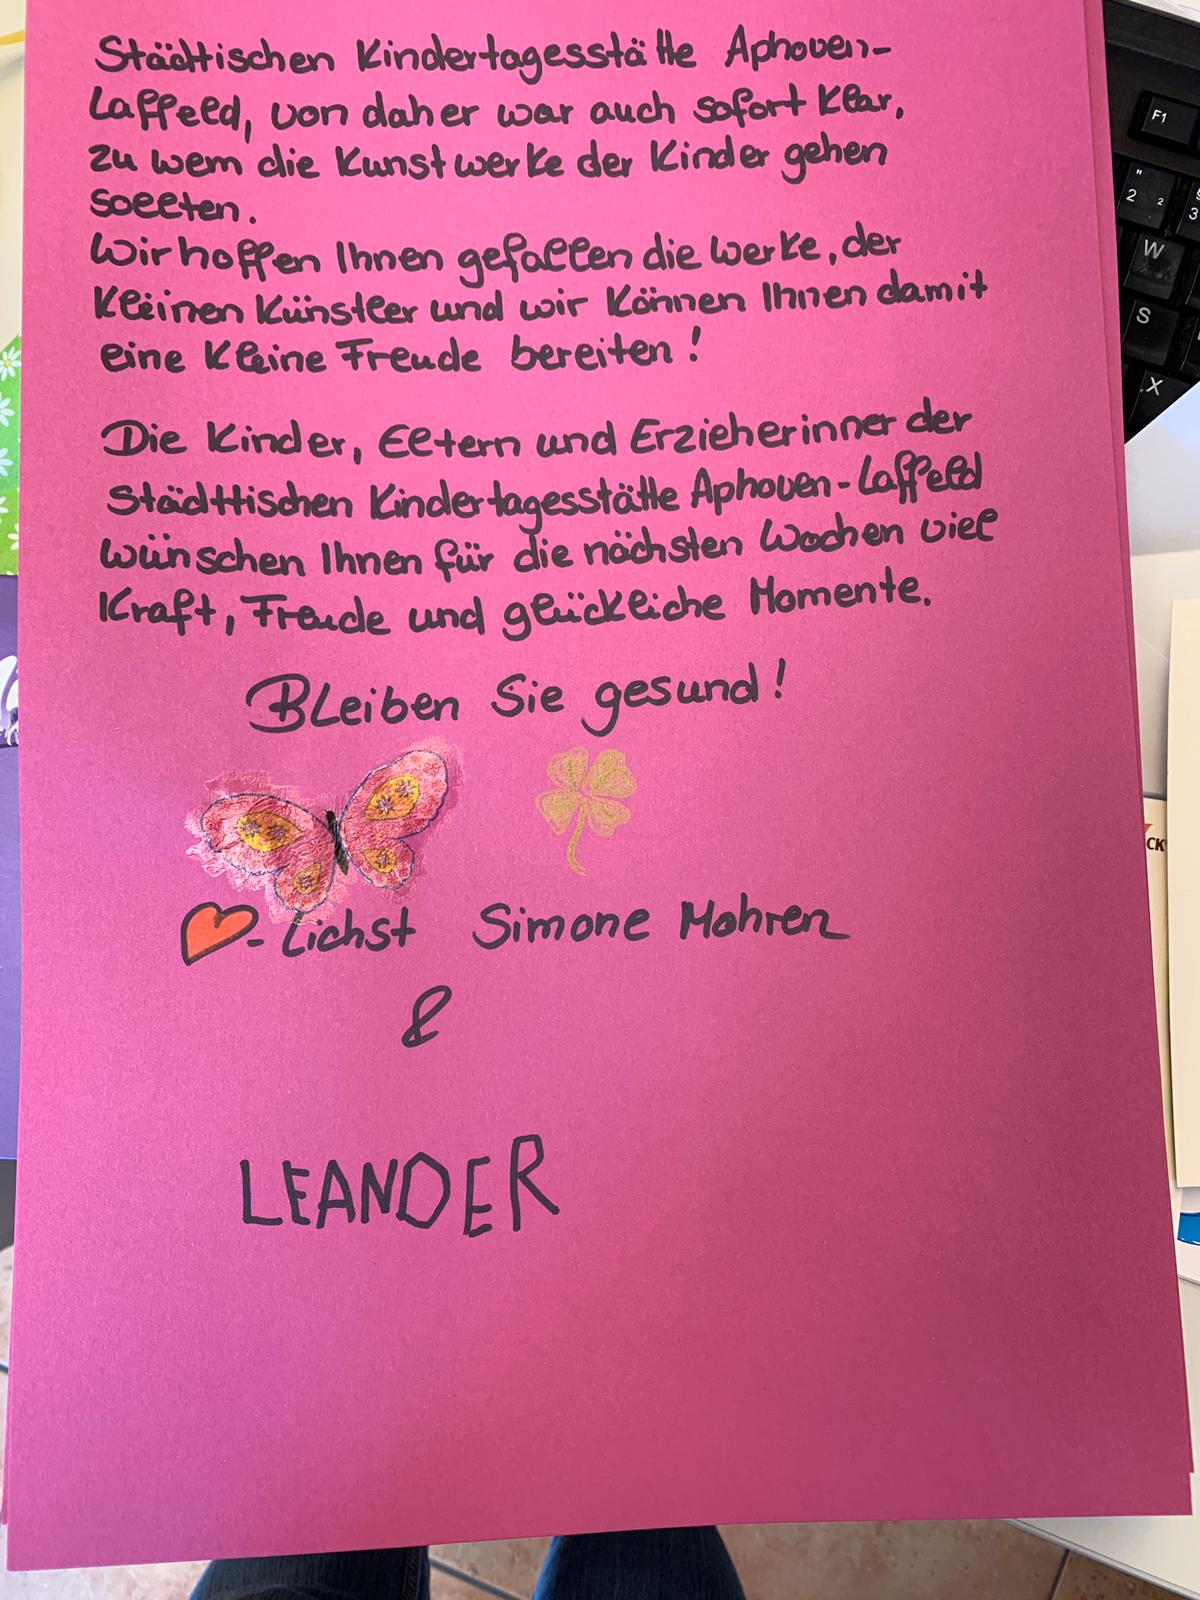 Städtischen Kindertagesstätte Aphoven-
Laffeld, von daher war auch sofort klar,
zu wem die Kunstwerke der Kinder gehen
sollten.
Wir hoffen Ihnen gefallen die Werke, der
kleinen Künstler und wir können Ihnen damit
eine kleine Freude bereiten!
Die Kinder, Eltern und Erzieherinner der
Städttischen Kindertagesstätte Aphoven-Laffeld
wünschen Ihnen für die nächsten Wochen viel
Kraft, Freude und glückliche Momente.
Bleiben Sie gesund!
-lichst Simone Mohren
&
LEANDER
F1
"
2 2
3
W
S
X
CK